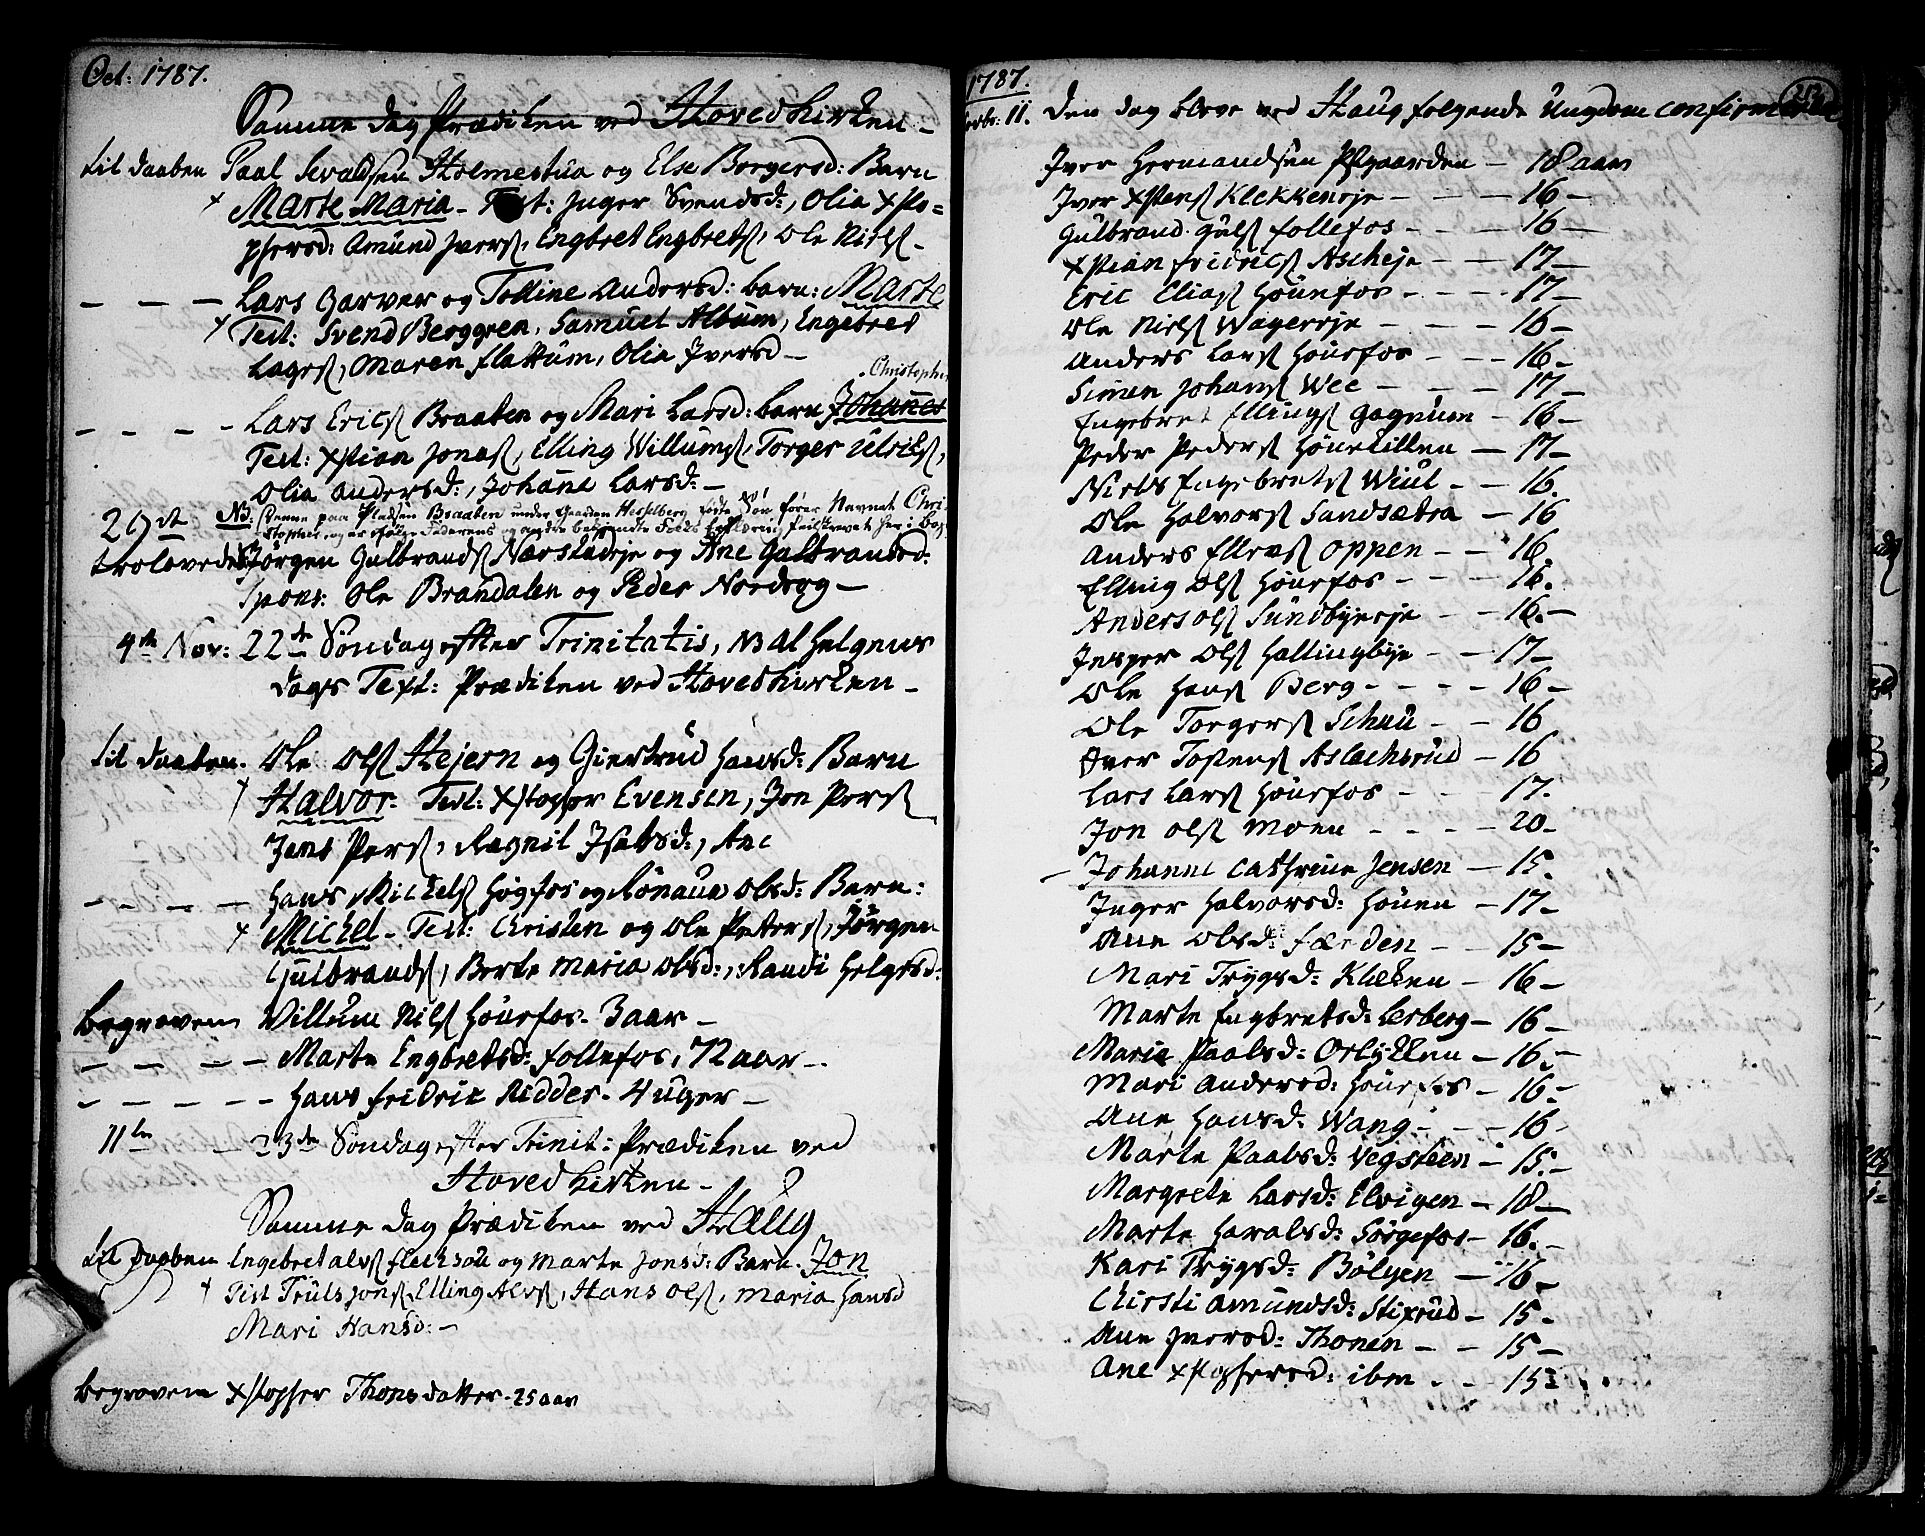 Oct: 1787.
Samme dag Prædiken ved Hovedkirken.
til daaben Paal Sevaldsen Holmestua og Else Borgersd: Barn
Marte Maria. Test: Inger Svendsd:, Olia Xsto=
phersd: Amund Ivers., Engbret Engbrets., Ole Niels.
– – – Lars Garver og Tolline Andersd: barn: Marte
Test: Svend Berggren, Samuel Album, Engebret
Lages., Maren Flattum, Olia Iversd –
Christopher
– – – – Lars Erics. Braaten og Mari Larsd: barn Johanes
Test: Xstian Jonas., Elling Willums., Torger Ulriks.,
Olia Andersd:, Johane Larsd: –
NB: Denne paa Pladsen Braaten under Gaarden Hesselberg fødte Søn fører Navnet Chri
stopher, og er ifølge Faderens og andre bekiendte Folks
29de
trolovede Jørgen Gulbrands. Nærstadeje og Ane Gulbrandsd:
Spons: Ole Brandalen og Peder Nordrog –
4de Nov: 22de Søndag efter Trinitatis, NB Al Helgens
dags Text: Prædiken ved Hovedkirken –
til daaben. Ole Ols. Hejern og Giertrud Hansd: Barn
Halvor. Test: Xstopher Evensen, Jon Pers.
Jens Pers., Ragnil Isaksd:, Ane
– – – – Hans Mickels. Høgfos og Rønaue Olsd: Barn:
Michel – Test: Christen og Ole Peters., Jørgen
Gulbrands., Berte Maria Olsd:, Randi Helgesd:
begraven Willum Nils. Hønefos. 3 aar –
– – – – Marte Engbretsd: Follefos, 72 aar –
– – – – – Hans Fridrik Ridder. 4 uger –
11te – 23de Søndag efter Trinit: Prædiken ved
Hovedkirken –
Samme dag Prædiken ved Haug
til daaben Engebret Alvs. Fleskou og Marte Jonsd: Barn. Jon
Test Truls Jons., Elling Alvs., Hans Ols., Maria Hansd
Mari Hansd: –
begraven Xstopher Thons datter. 25 aar
1787.
Novbr: 11. den dag bleve ved Haug følgende Ungdom confirmerede
Iver Hermandsen Pstgaarden – 18 aar
Iver Xstens. Klekkeneje – – – 16 –
Gulbrand Guls. Follefos – – – 16 –
Xstian Fridrics. Ascheje – – 17 –
Eric Elias. Hønefos – – – 17 –
Ole Niels. Wagereje – – – 16 –
Anders Lars. Hønefos – – – 16 –
Simen Johans. Wee – – – 17 –
Engebret Ellings. Gagnum – 16 –
Peder Peders. Hønekillen – 17 –
Niels Engebrets. Wiul – – 16.
Ole Halvors. Sandsætra – 16
Anders Ellens. Oppen – – 16
Elling Ols. Hønefos – – – 16.
Anders Ols. Sundbyeeje – – 16. –
Jesper Ols. Hallingbye – – 17 –
Ole Hans. Berg – – – – 16 –
Ole Torgers. Schau – – 16
Iver Tostens. Aslachsrud – 16
Lars Lars. Hønefos – – – 17.
Jon Ols. Moen – – – – 20 –
– Johanne Cathrine Jensen – 15.
Inger Halvorsd: Hønen – 17 –
Ane Olsd: Færden – – 15 –
Mari Trygsd: Klekken – 16 –
Marte Engbretsd: Lerberg – 16 –
Marie Paalsd: Orlykken – 16. –
Mari Andersd: Hønefos – 16. –
Ane Hansd: Wang – – – 16 –
Marte Paalsd: Vegsteen – 15. –
Margrete Larsd: Elvigen – 18 –
Marte Haralsd: Sørgefos – 16. –
Kari Trygsd: Bølgen – 16 –
Chirsti Amundsd: Stixrud – 15 –
Ane Iversd: Thonen – – 15 –
Ane Xstophersd: ibm – – 15